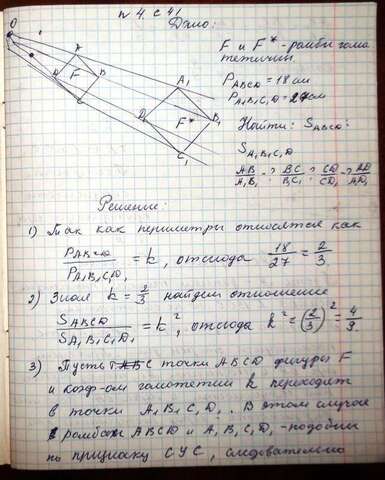 № 4. с 41
Дано:
F и F* - ромбы гомо
тетичны.
P ABCD = 18 см
P A₁B₁C₁D₁ = 27 см
Найти: S ABCD :
S A₁B₁C₁D
AB/A₁B₁ ? BC/B₁C₁ ? CD/CD₁ ? AD/AD₁
O
A
D
F
B
C
A₁
D₁
F*
B₁
C₁
Решение:
1) Так как периметры относятся как
P ABCD / P A₁B₁C₁D₁ = k, отсюда 18/27 = 2/3.
2) Зная k = 2/3 найдем отношение
S ABCD / S A₁B₁C₁D₁ = k², отсюда k² = (2/3)² = 4/9.
3) Пусть точки ABCD фигуры F
и коэф-ом гомотетии k переходят
в точки A₁B₁C₁D₁. В этом случае
ромбы ABCD и A₁B₁C₁D₁ - подобны
по признаку СУС, следовательно